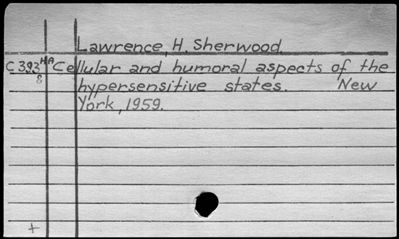 Lawrence, H. Sherwood.
C 393 HA Cellular and humoral aspects of the
8 hypersensitive states. New
York, 1959.
+